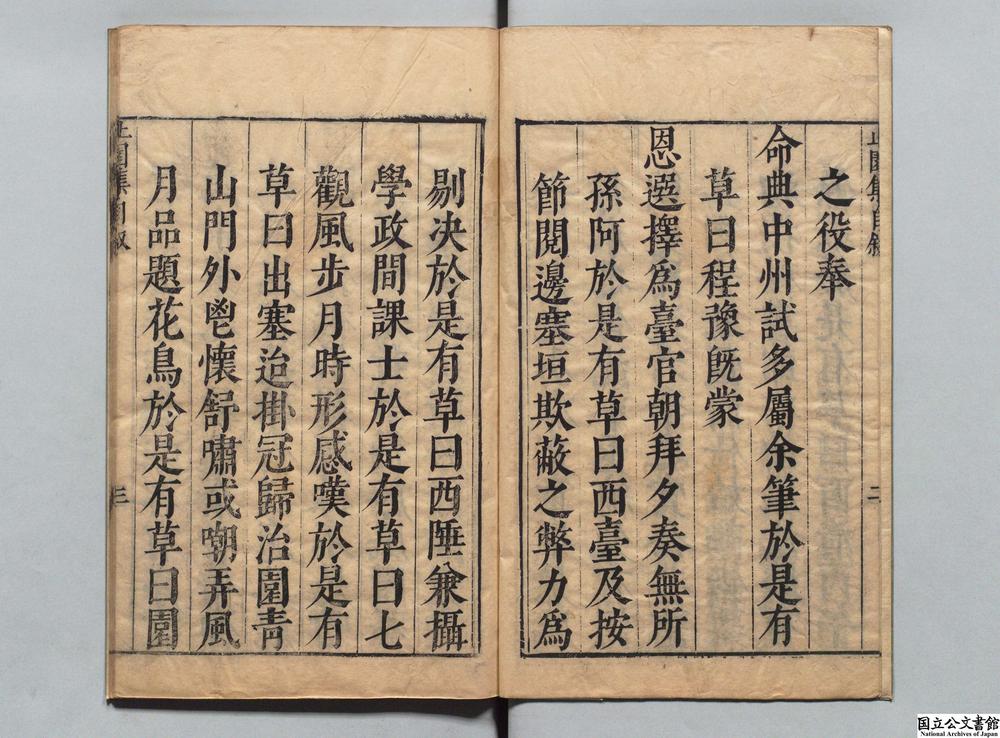 止園集自敘 二
之役奉
命典中州試多屬余筆於是有
草曰程豫旣蒙
恩選擇爲臺官朝拜夕奏無所
孫阿於是有草曰西臺及按
節閱邊塞垣欺蔽之弊力爲
剔決於是有草曰西陲兼攝
學政間課士於是有草曰七
觀風步月時形感嘆於是有
草曰出塞迨掛冠歸治園青
山門外鬯懷舒嘯或嘲弄風
月品題花鳥於是有草曰園
止園集自敘 三
国立公文書館
National Archives of Japan